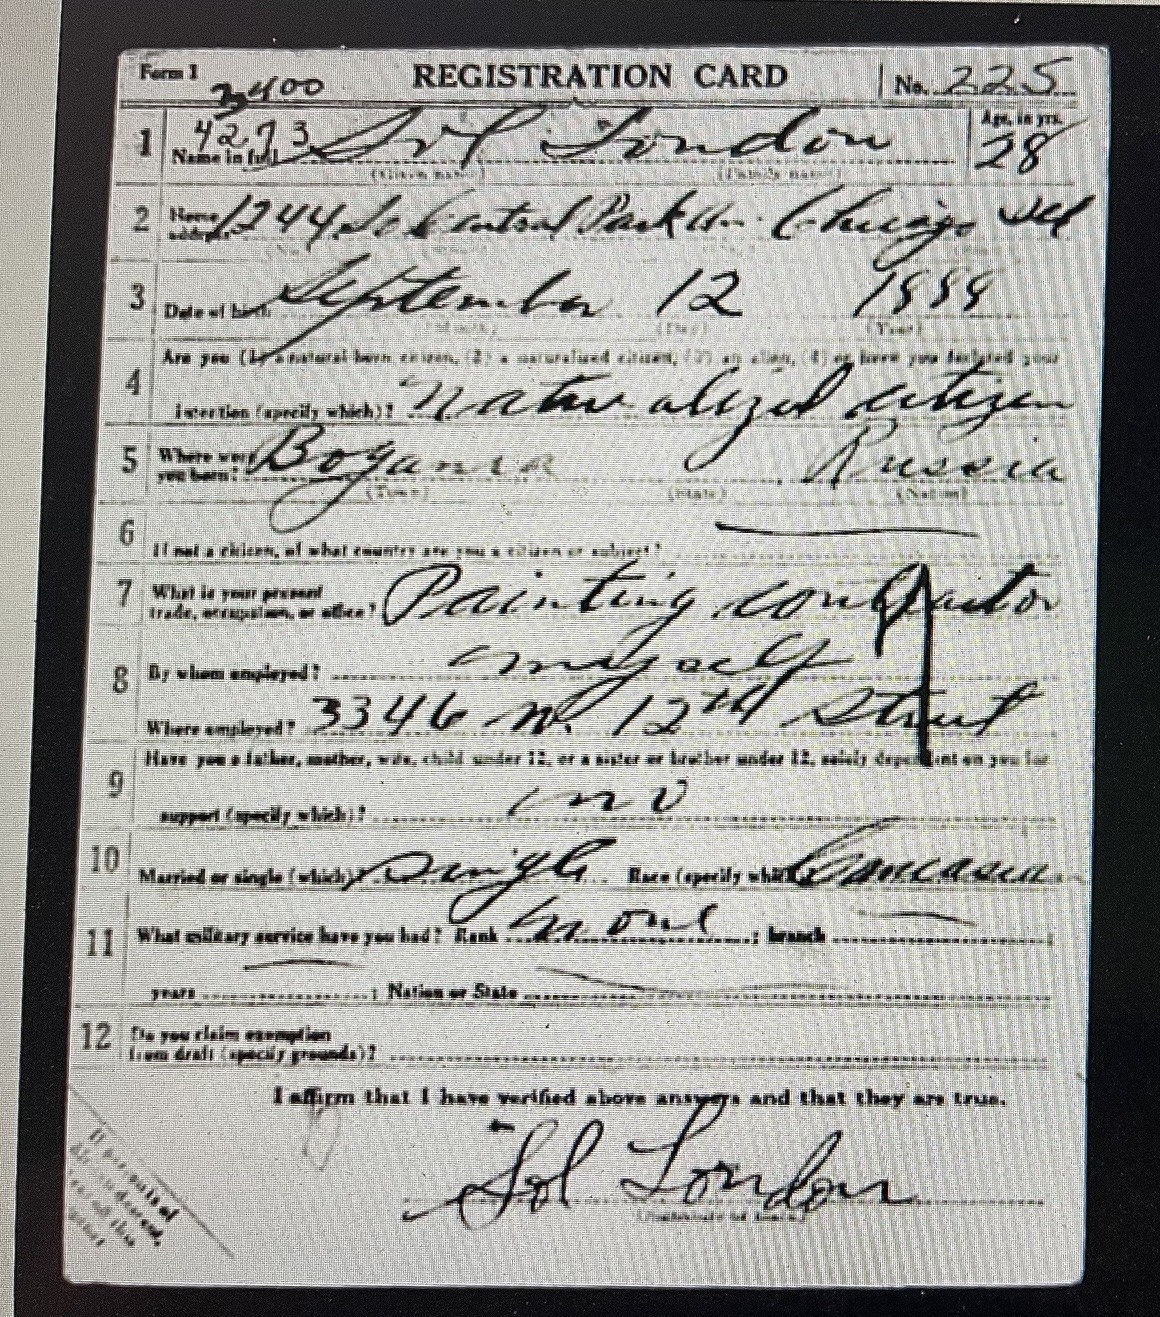 Form 1 3400 REGISTRATION CARD No. 225
1 4273 Name in full Sol London Age, in yrs. 28
(Given name) (Family name)
2 Home address 1244 So Central Park Av. Chicago Ill
3 Date of birth September 12 1888
(Month) (Day) (Year)
Are you (1) a natural born citizen, (2) a naturalized citizen, (3) an alien, (4) or have you declared your
4 intention (specify which)? Naturalized citizen
5 Where were you born? Bogania Russia
(Town) (State) (Nation)
6 If not a citizen, of what country are you a citizen or subject?
7 What is your present trade, occupation, or office? Painting contractor
8 By whom employed? myself
Where employed? 3346 W. 12th Street
9 Have you a father, mother, wife, child under 12, or a sister or brother under 12, solely dependent on you for
support (specify which)? no
10 Married or single (which)? Single Race (specify which)? Caucasian
11 What military service have you had? Rank none ; branch
years ; Nation or State
12 Do you claim exemption
from draft (specify grounds)?
I affirm that I have verified above answers and that they are true.
Sol London
If person is of